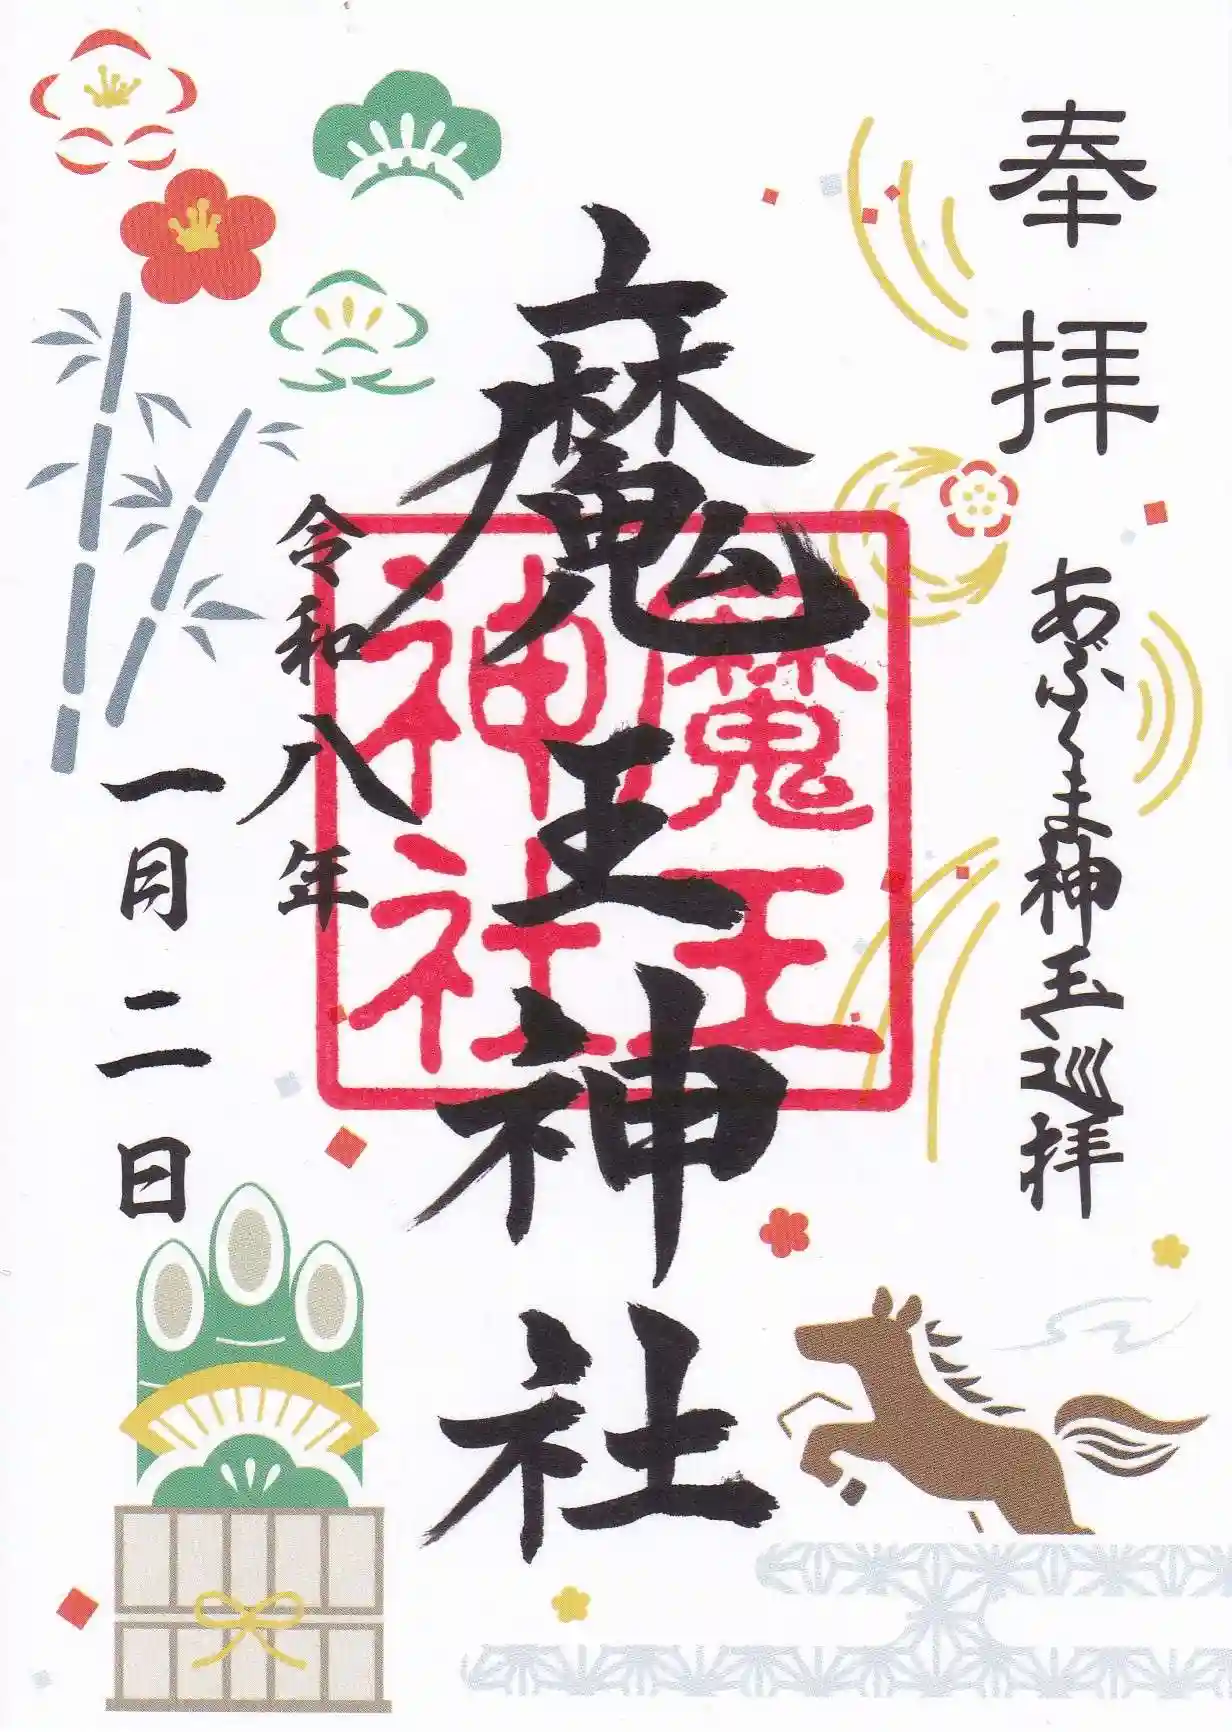 奉拝
あぶくま神玉巡拝
魔王神社
魔王
神社
令和八年
一月二日